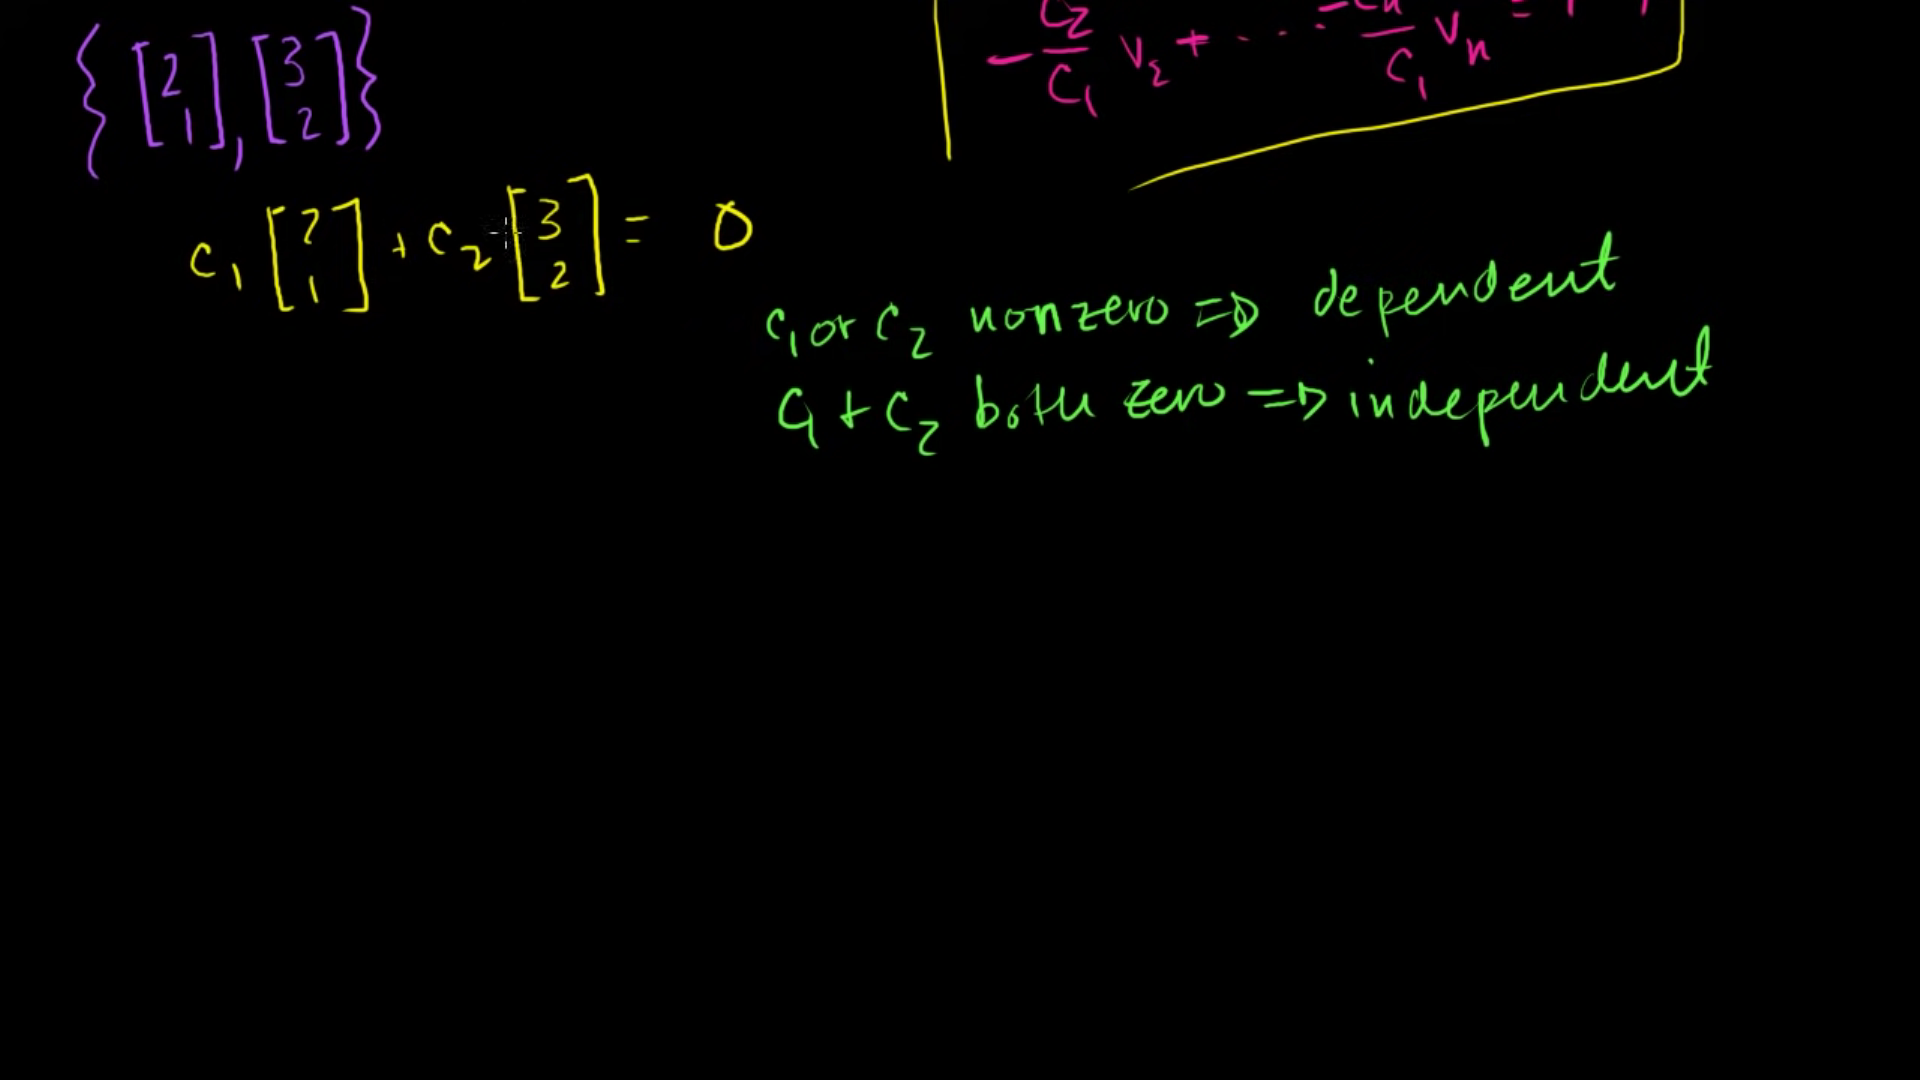 {[2 1], [3 2]}
-c2/c1 v2 + ... -cn/c1 vn =
c1 [2 1] + c2 [3 2] = 0
c1 or c2 nonzero ⇒ dependent
c1 + c2 both zero ⇒ independent